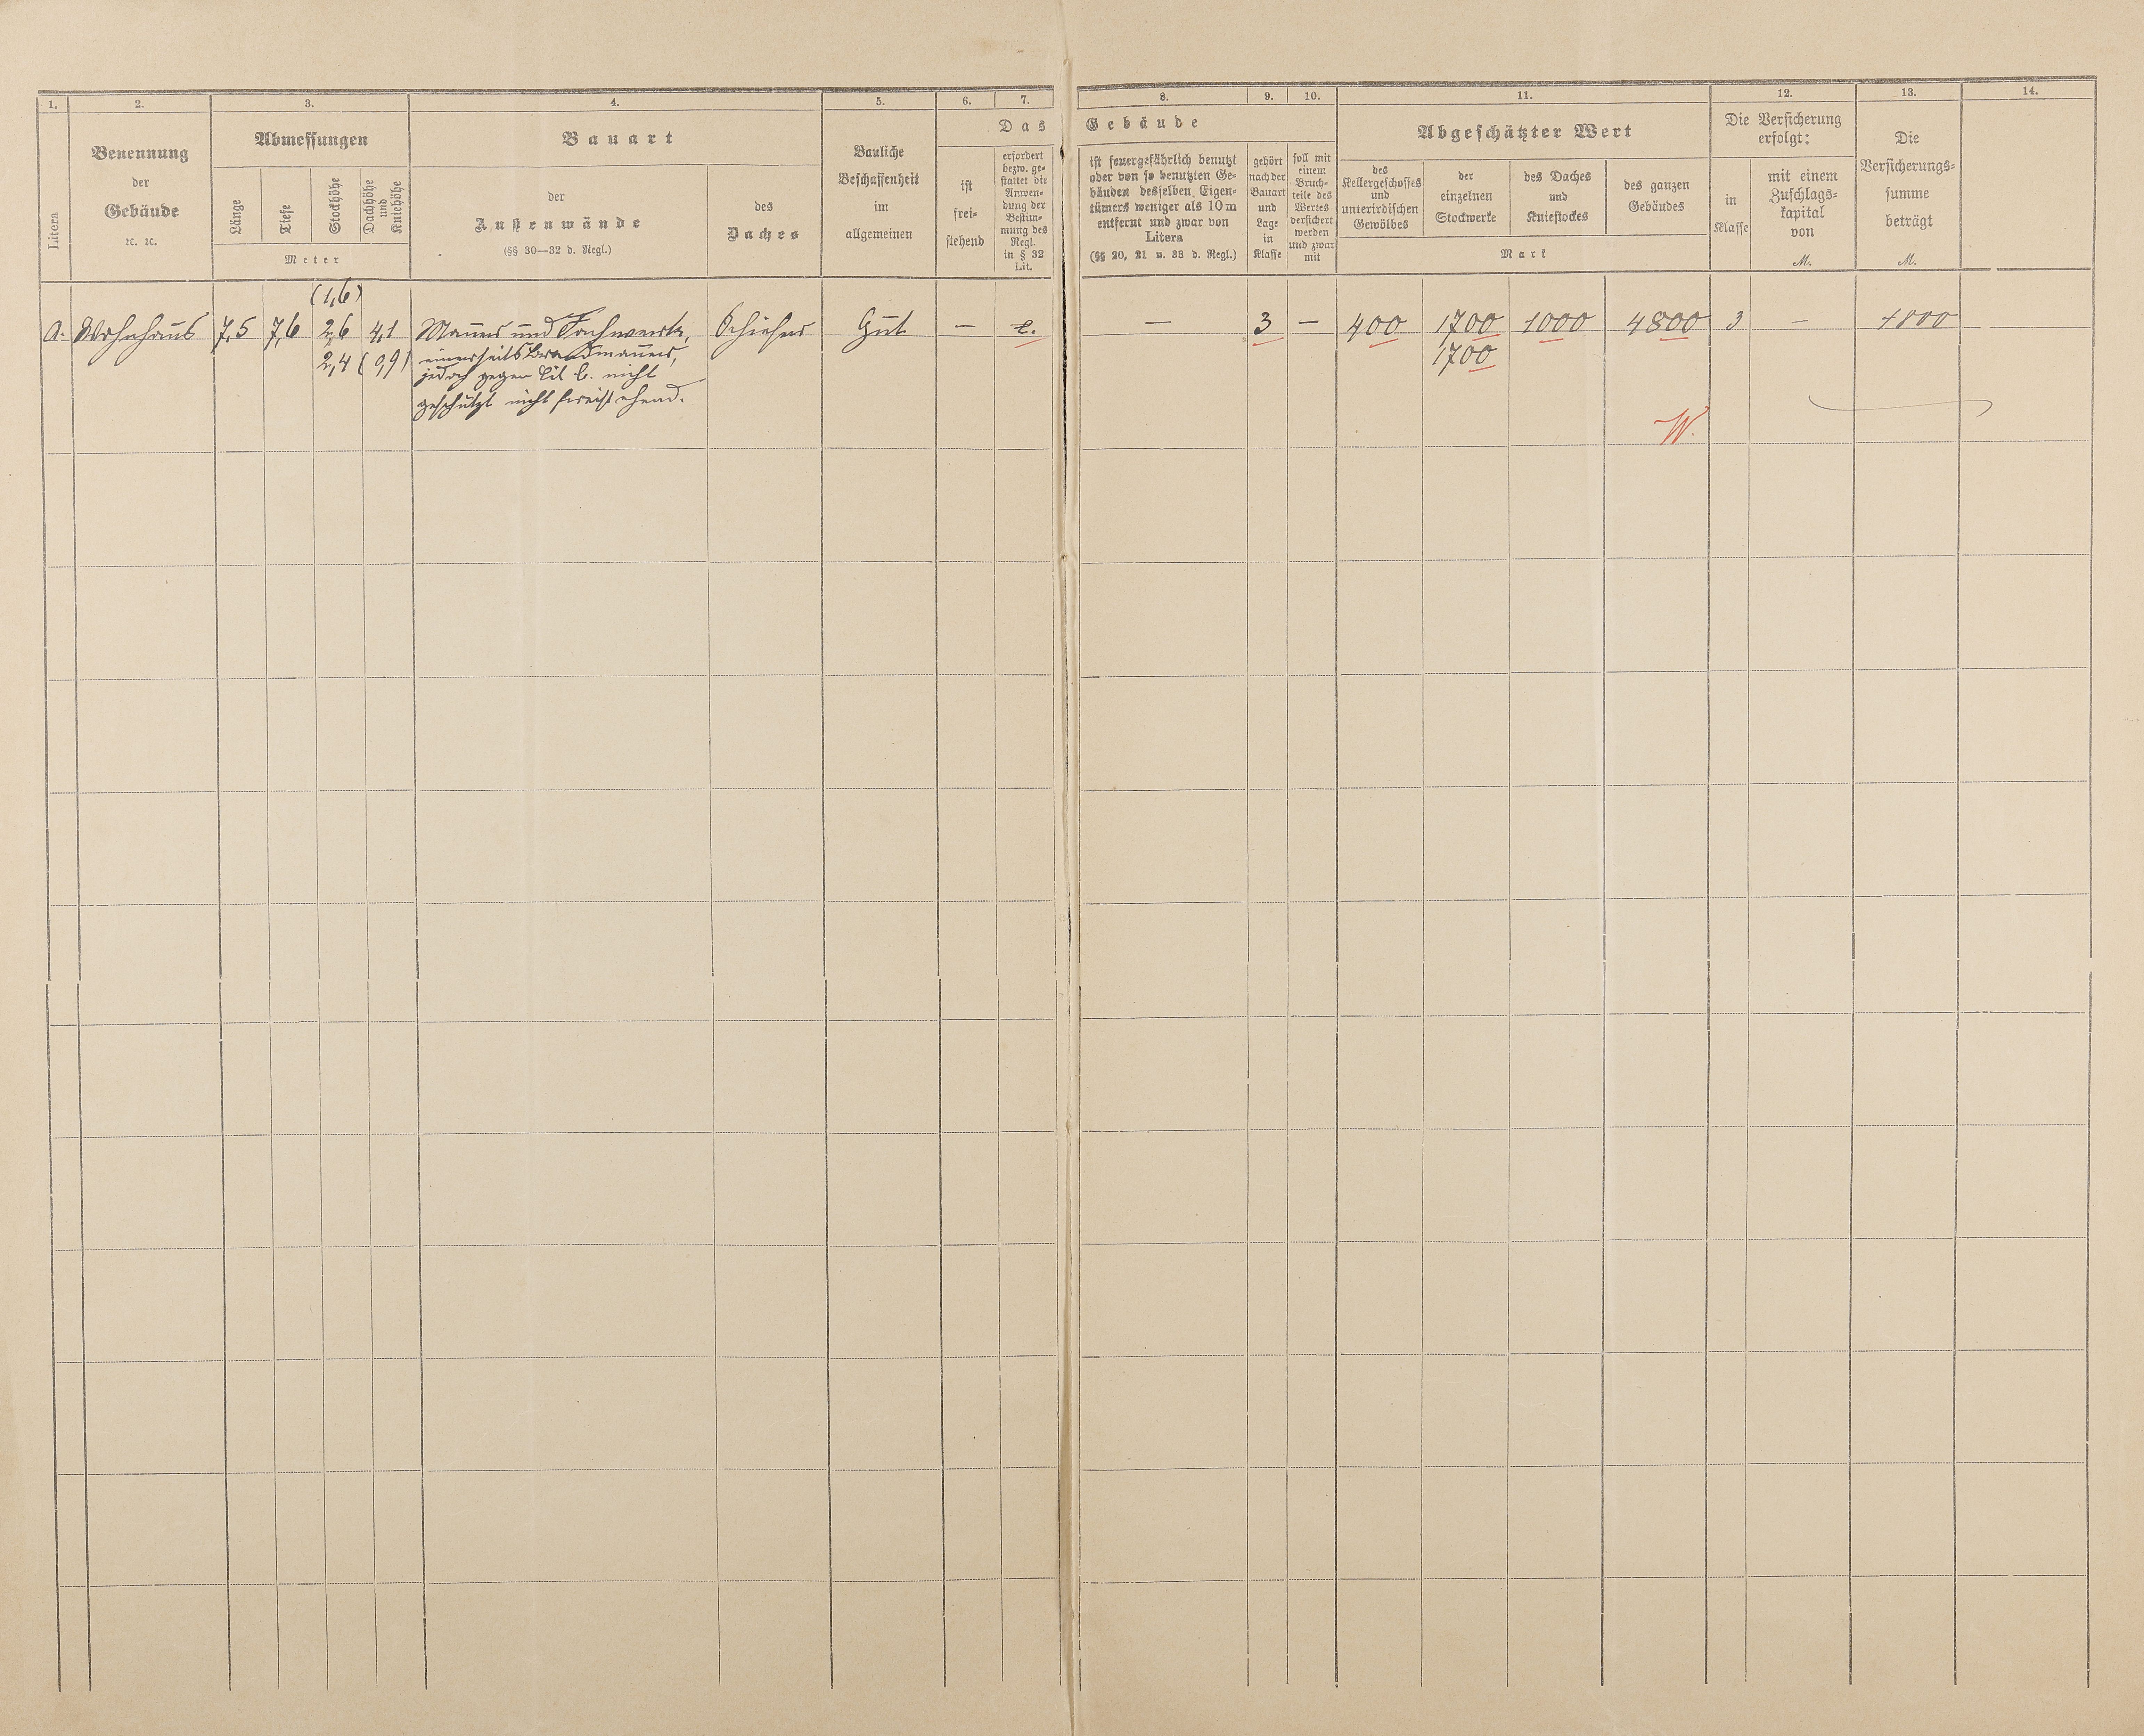 1. 2. 3. 4. 5. 6. 7. 8. 9. 10. 11. 12. 13. 14.
Litera
Benennung
der
Gebäude
ꝛc. ꝛc.
Abmessungen
Länge
Tiefe
Stockhöhe
Dachhöhe
und
Kniehöhe
Meter
Bauart
der
Außenwände
(§§ 30—32 d. Regl.)
des
Daches
Bauliche
Beschaffenheit
im
allgemeinen
Das Gebäude
ist
frei-
stehend
erfordert
bezw. ge-
stattet die
Anwen-
dung der
Bestim-
mung des
Regl.
in § 32
Lit.
ist feuergefährlich benutzt
oder von so benutzten Ge-
bäuden desselben Eigen-
tümers weniger als 10 m
entfernt und zwar von
Litera
(§§ 20, 21 u. 38 d. Regl.)
gehört
nach der
Bauart
und
Lage
in
Klasse
soll mit
einem
Bruch-
teile des
Wertes
versichert
werden
und zwar
mit
Abgeschätzter Wert
des
Kellergeschosses
und
unterirdischen
Gewölbes
der
einzelnen
Stockwerke
des Daches
und
Kniestockes
des ganzen
Gebäudes
Mark
Die Versicherung
erfolgt:
in
Klasse
mit einem
Zuschlags-
kapital
von
M.
Die
Versicherungs-
summe
beträgt
M.
(1,6)
a. Wohnhaus 7,5 7,6 2,6 4,1 Mauer und Fachwerk, Schiefer Gut — c. — 3 — 400 1700 1000 4800 3 — 4800
2,4 (0,9) einerseits Brandmauer, 1700
jedoch gegen Lit b. nicht
geschützt nicht freistehend.
W.